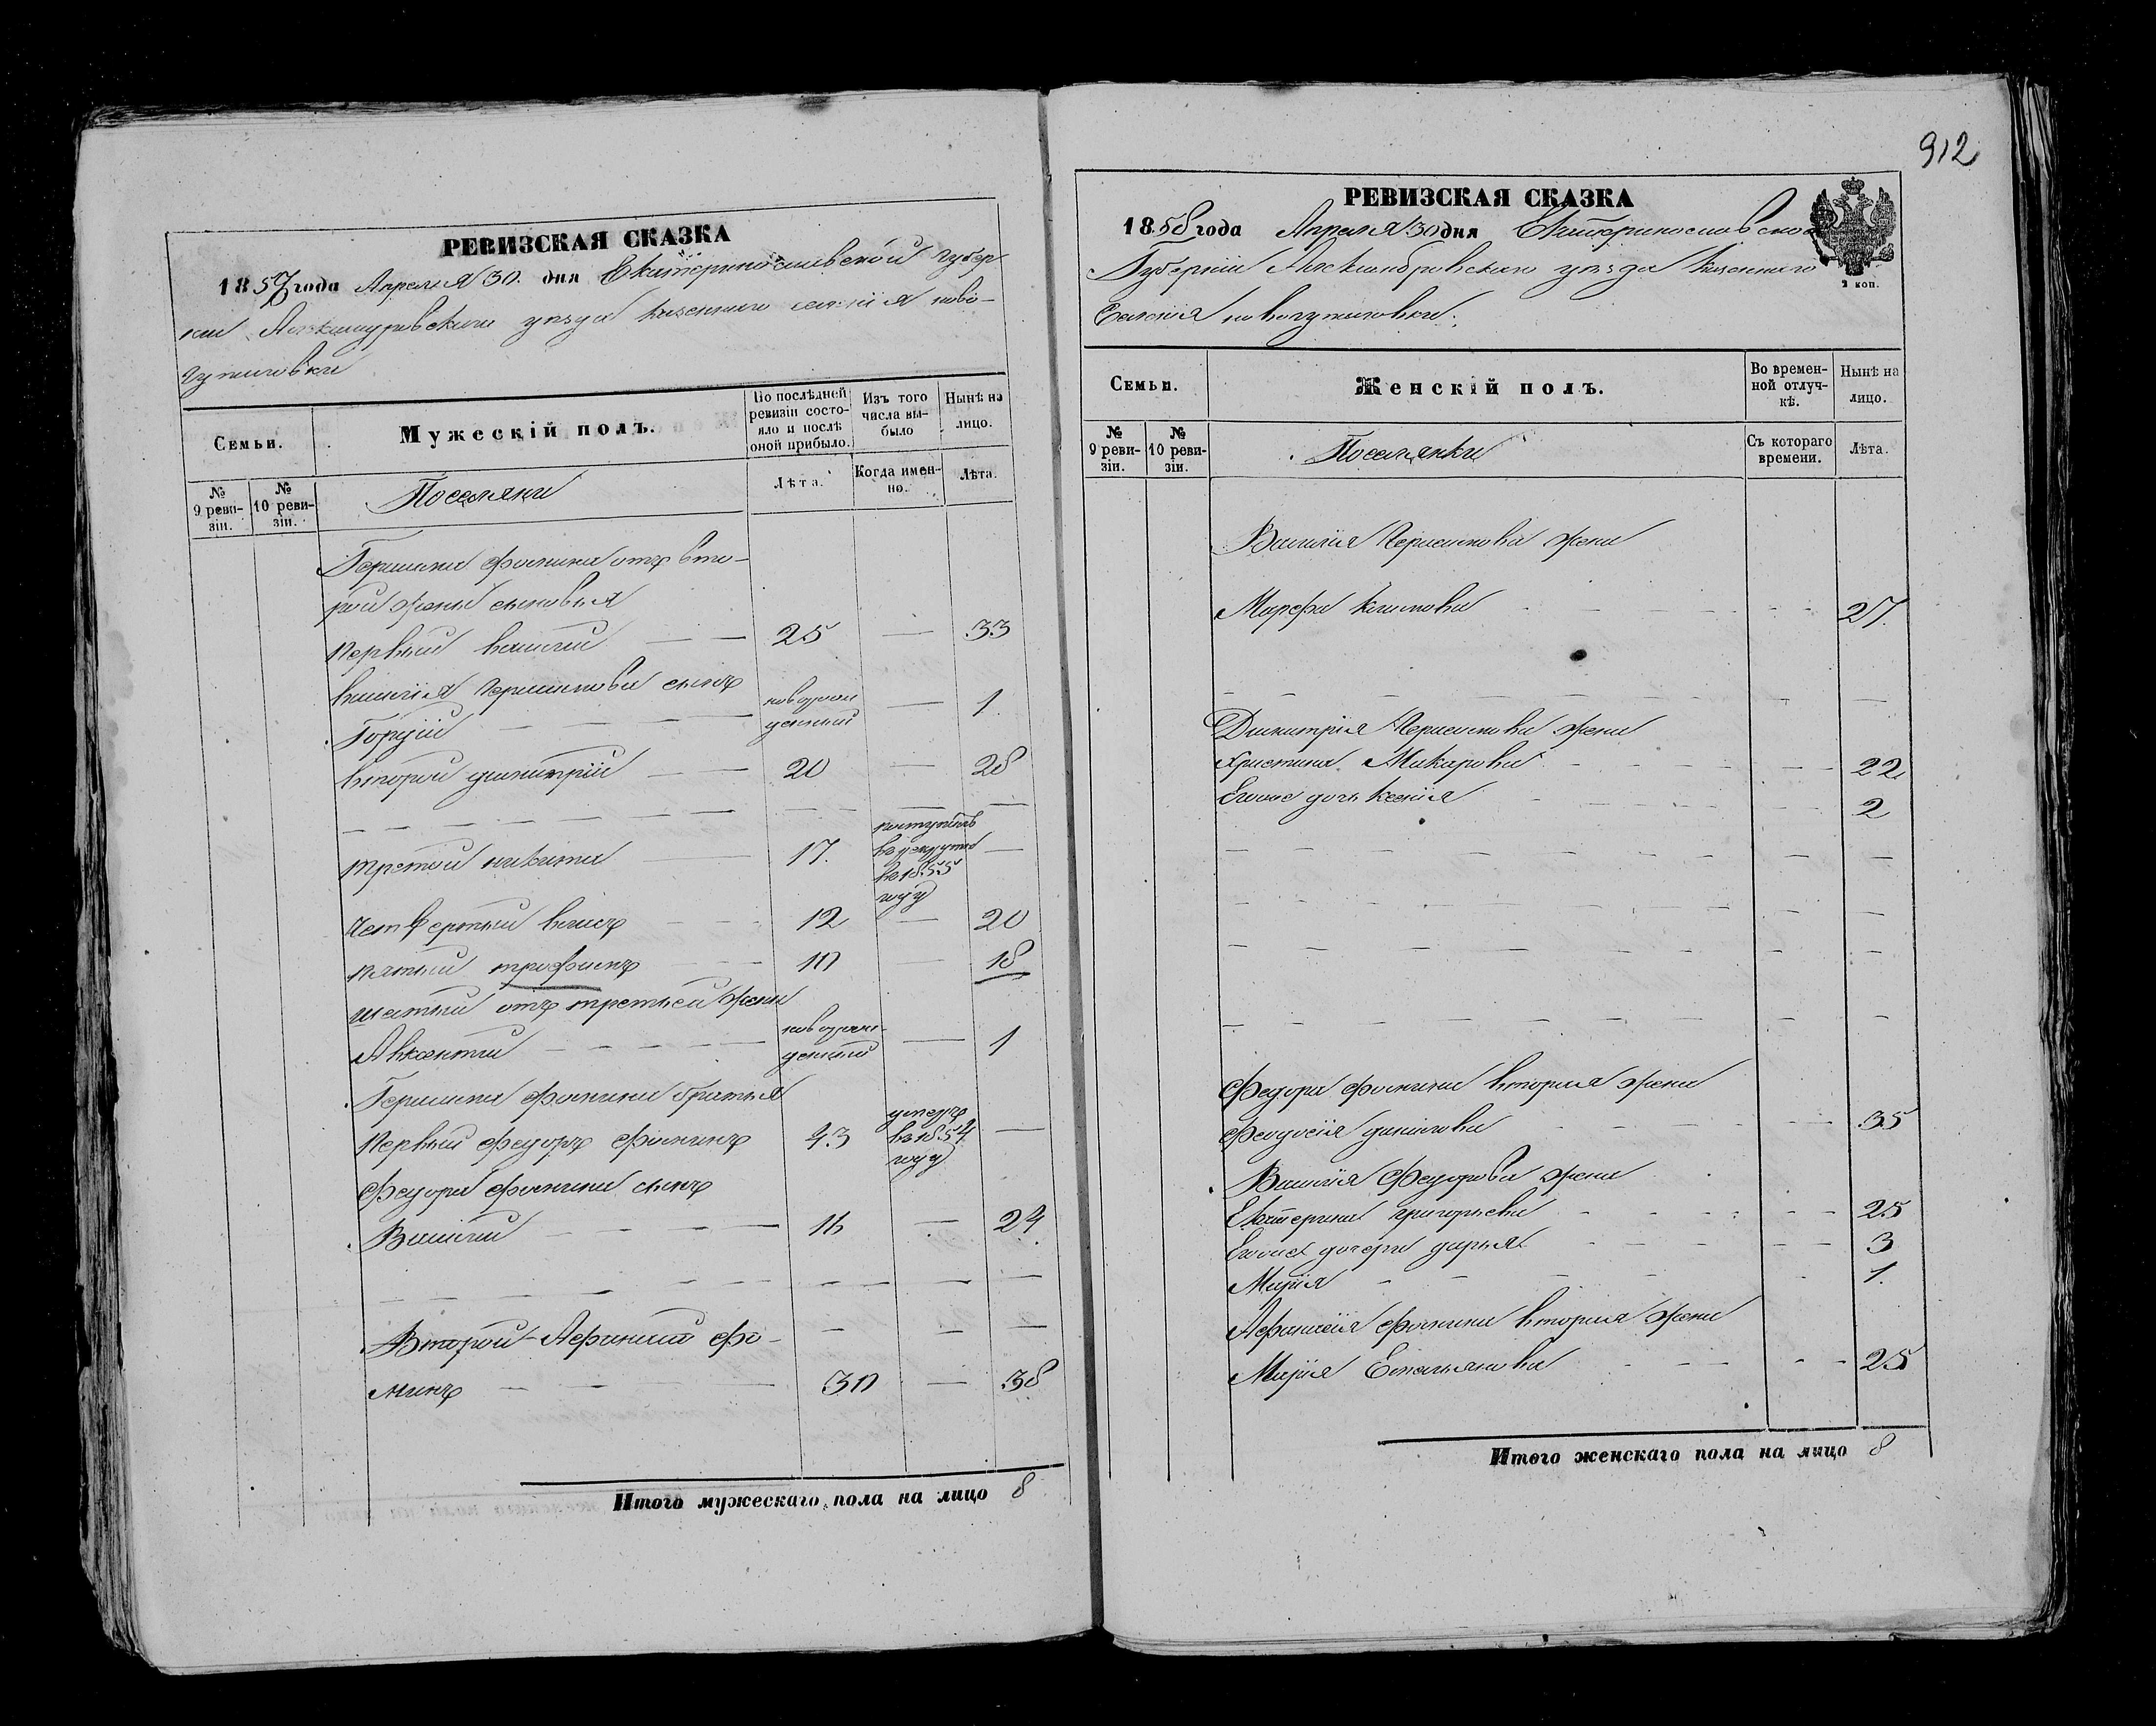 912
РЕВИЗСКАЯ СКАЗКА
1857 года Апреля 30. дня Екатеринославской губер
нии Александровскаго уезда казеннаго селенія ново-
гупаловки
Семьи.
Мужескій полъ.
По послѣдней ревизіи состо-яло и послѣ оной прибыло.
Изъ того числа вы-было
Нынѣ на лицо.
№ 9 реви-зіи.
№ 10 реви-зіи.
Поселяни
Лѣта.
Когда имен-но.
Лѣта.
Германа Фомина отъ вто-
рой жены сыновья
первый василий — — 25 — 33
василія Германова сынъ
новорож
денный — 1.
второй димитрій — — 20 — 28
третий никита — 17. поступилъ
в рекруты
въ 1855
году —
четвертый власъ — — 12 — 20
пятый трофимъ — — 10 — 18
шестый отъ третьей жены
Авксентий — новорож-
денный — 1
Германа Фомина братья
первый Федоръ Фоминъ 43 умеръ
въ 1854
году —
Федора Фомина сынъ
Василий — 16 — 24
Второй Афанасий Фо-
минъ — 30 — 38
Итого мужескаго пола на лицо 8
РЕВИЗСКАЯ СКАЗКА
1858 года Апреля 30 дня Екатеринославской
Губерніи Александровскаго уезда казеннаго
Селенія новогупаловки.
2 коп.
Семьи.
Женскій полъ.
Во времен-ной отлуч-кѣ.
Нынѣ на лицо.
№ 9 реви-зіи.
№ 10 реви-зіи.
Поселянки
Съ котораго времени.
Лѣта.
Василія Германова жена
Марфа Климова 27.
Димитрія Германова жена
Христина Макарова 22
Егоже дочь Ксенія 2
Федора Фомина вторая жена
Феодосія данилова 35
Василія Федорова жена
Екатерина григорьева 25
Егоже дочери дарья 3
Марія 1.
Афанасія Фомина вторая жена
Марія Емельянова 25
Итого женскаго пола на лицо 8